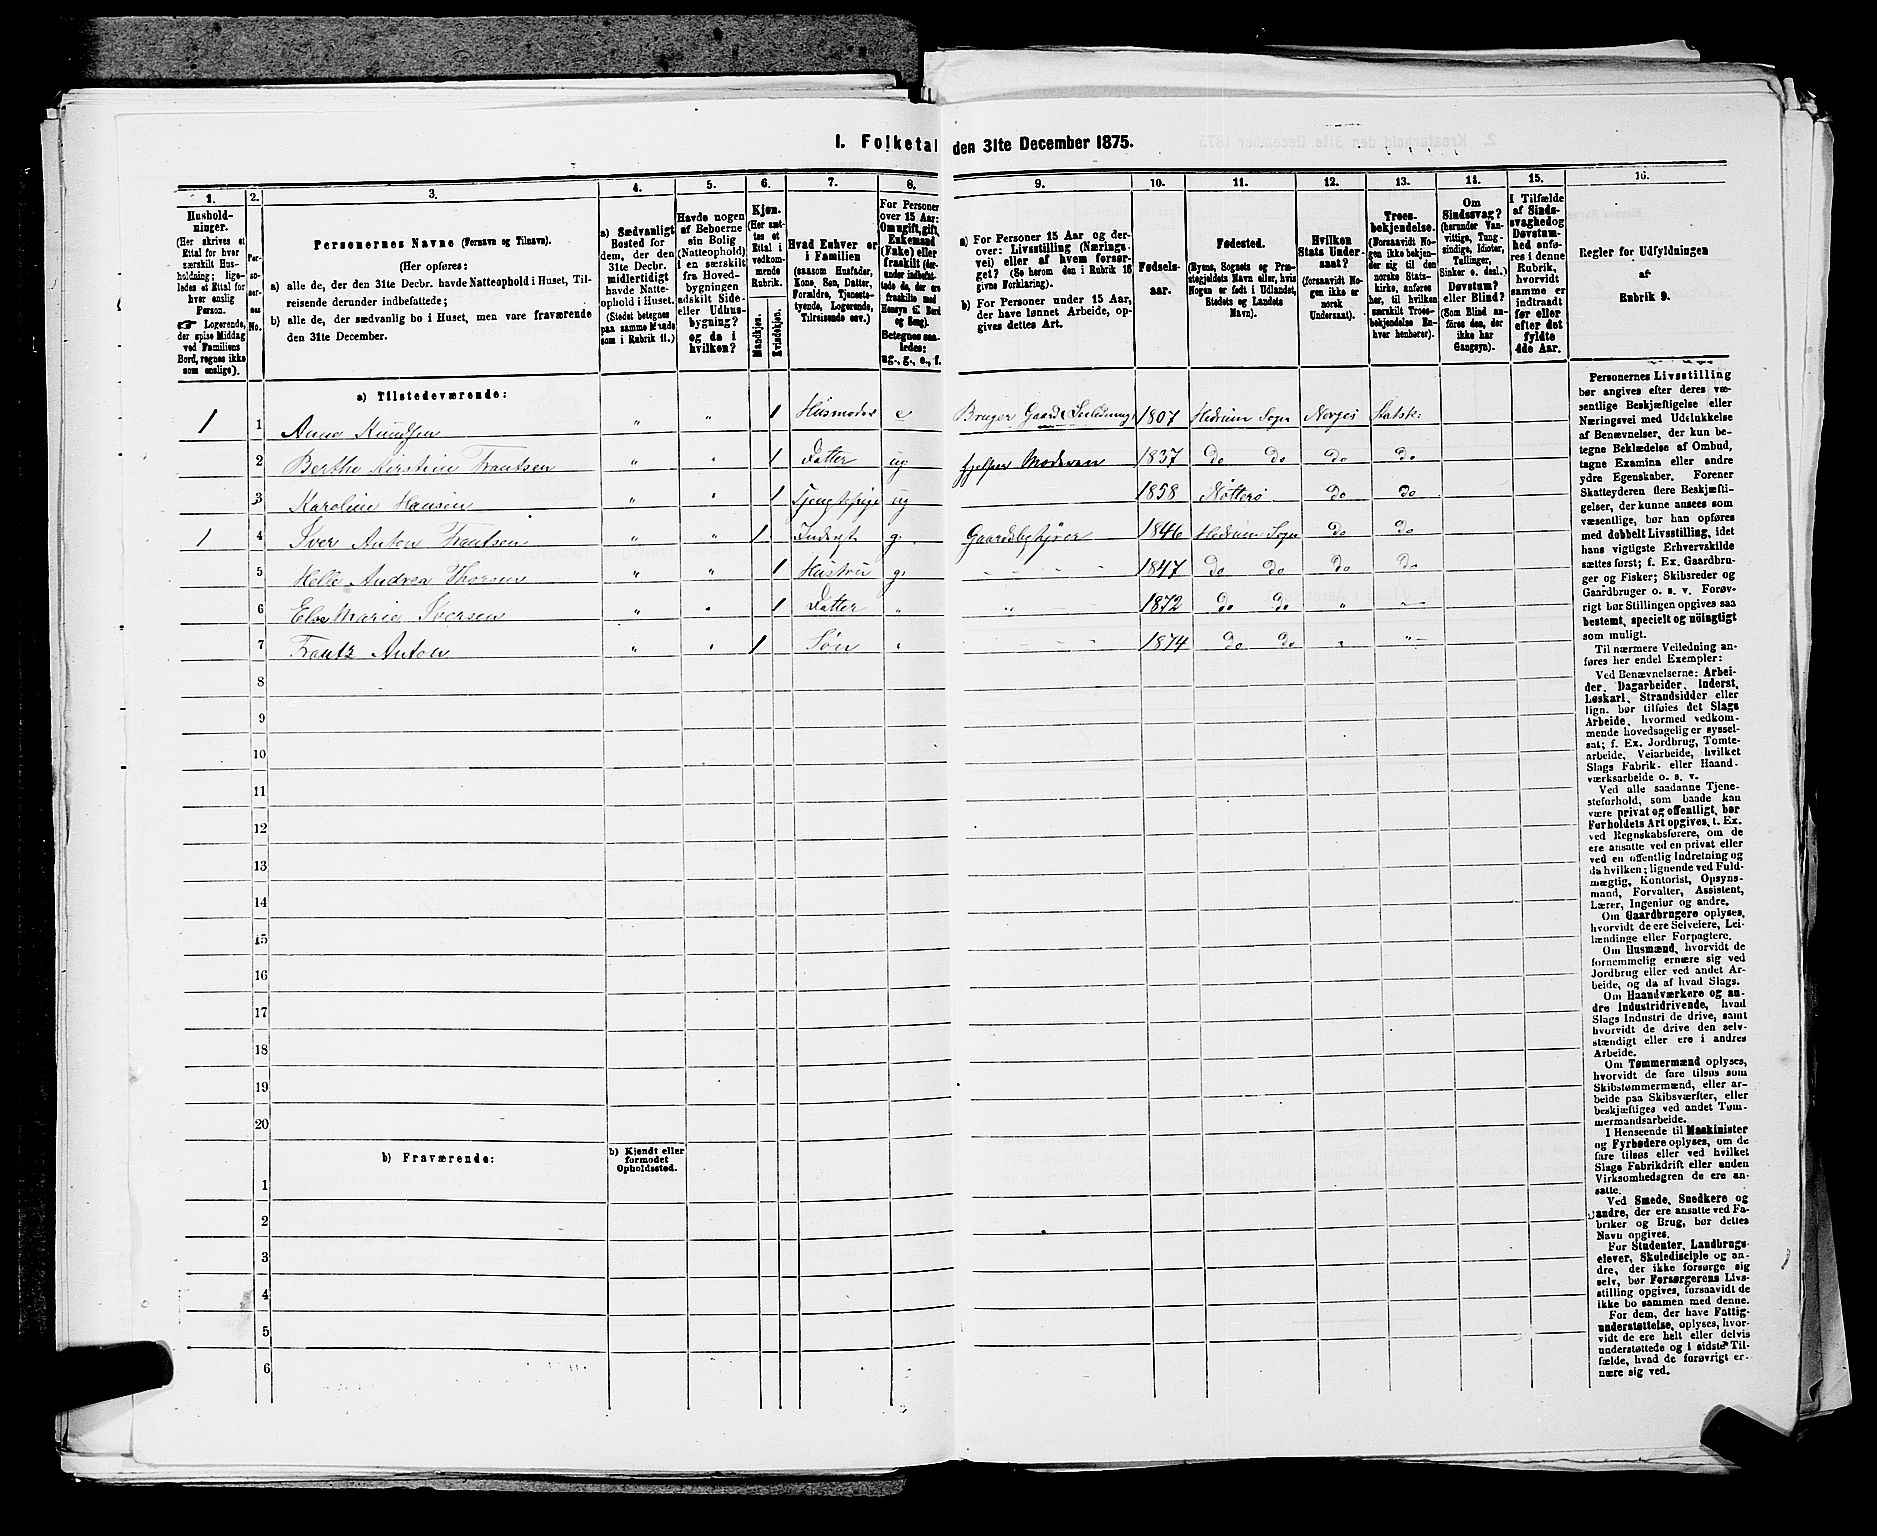 1. Folketal den 31te December 1875.
1. 2. 3. 4. 5. 6. 7. 8. 9. 10. 11. 12. 13. 14. 15. 16.
Hushold-
ninger.
(Her skrives et
Ettal for hver
særskilt Hus-
holdning; lige-
ledes et Ettal for
hver enslig
Person.
☞ Logerende,
der spise Middag
ved Familiens
Bord, regnes ikke
som enslige).
Per-
so-
ner-
nes
No.
Personernes Navne (Fornavn og Tilnavn).
(Her opføres:
a) alle de, der den 31te Decbr. havde Natteophold i Huset, Til-
reisende derunder indbefattede;
b) alle de, der sædvanlig bo i Huset, men vare fraværende
den 31te December.
a) Sædvanligt
Bosted for
dem, der den
31te Decbr.
midlertidigt
havde Natte-
ophold i Huset.
(Stedet betegnes
paa samme Maade
som i Rubrik 11.)
Havde nogen
af Beboerne
sin Bolig
(Natteophold)
i en særskilt
fra Hoved-
bygningen
adskilt Side-
eller Udhus-
bygning?
og da i
hvilken?
Kjøn.
(Her sæt-
tes et
Ettal i
vedkom-
mende
Rubrik.
Mandkjøn.
Kvindekjøn.
Hvad Enhver er
i Familien
(saasom Husfader,
Kone, Søn, Datter,
Forældre, Tjeneste-
tyende, Logerende,
Tilreisende osv.)
For Personer
over 15 Aar:
Om ugift, gift,
Enkemand
(Enke) eller
fraskilt (her-
under indbefat-
tede de, der ere
fraskilte med
Hensyn til Bord
og Seng).
Betegnes saa-
ledes:
ug., g., e., f.
a) For Personer 15 Aar og der-
over: Livsstilling (Nærings-
vei) eller af hvem forsør-
get? (Se herom den i Rubrik 16
givne Forklaring).
b) For Personer under 15 Aar,
der have lønnet Arbeide, op-
gives dettes Art.
Fødsels-
aar.
Fødested.
(Byens, Sognets og Præ-
stegjeldets Navn eller, hvis
Nogen er født i Udlandet,
Stedets og Landets
Navn).
Hvilken
Stats Under-
saat?
(forsaavidt No-
gen ikke er
norsk
Undersaat).
Troes-
bekjendelse.
(Forsaavidt No-
gen ikke bekjen-
der sig til den
norske Stats-
kirke, anføres
her, til hvilken
særskilt Troes-
bekjendelse En-
hver henhører).
Om
Sindssvag?
(herunder Van-
vittige, Tung-
sindige, Idioter,
Tullinger,
Sinker o. desl.)
Døvstum?
eller Blind?
(Som Blind an-
føres den, der
ikke har
Gangsyn).
I Tilfælde
af Sinds-
svaghed og
Døvstum-
hed anfø-
res i denne
Rubrik,
hvorvidt
samme er
indtraadt
før eller
efter det
fyldte
4de Aar.
Regler for Udfyldningen
af
Rubrik 9.
a) Tilstedeværende:
1 1 Anne Knudsen " " 1 Husmoder e Bruger Gaard 1807 Hedrum Sogn Norges Statsk:
2 Berthe Kirstine Frantsen " " 1 Datter ug hjelper Moderen 1837 do do do do
3 Karoline Hansen " " 1 ug 1858 Nötterö do do
1 4 Iver Anton Frantsen " " 1 Inderst g. 1846 Hedrum Sogn do do
5 Helle Andrea Thorsen " " 1 Hustru g. 1847 do do do do
6 Else Marie Iversen " " 1 Datter " " 1872 do do " "
7 Frantz Anton " " 1 Søn " 1874 do do " "
8
9
10
11
12
13
14
15
16
17
18
19
20
b) Fraværende:
b) Kjendt eller
formodet
Opholdssted.
1
2
3
4
5
6
Personernes Livsstilling
bør angives efter deres væ-
sentlige Beskjæftigelse eller
Næringsvei med Udelukkelse
af Benævnelser, der kun be-
tegne Beklædelse af Ombud,
tagne Examina eller andre
ydre Egenskaber. Forener
Skatteyderen flere Beskjæfti-
gelser, der kunne ansees som
væsentlige, bør han opføres
med dobbelt Livsstilling, idet
hans vigtigste Erhvervskilde
sættes først; f. Ex. Gaardbru-
ger og Fisker; Skibsreder og
Gaardbruger o. s. v. Forøv-
rigt bør Stillingen opgives saa
bestemt, specielt og nöiagtigt
som muligt.
Til nærmere Veiledning an-
føres her endel Exempler:
Ved Benævnelserne: Arbei-
der, Dagarbeider, Inderst,
Løskarl, Strandsidder eller
lign. bør tilføies det Slags
Arbeide, hvormed vedkom-
mende hovedsagelig er syssel-
sat; f. Ex. Jordbrug, Tomte-
arbeide, Veiarbeide, hvilket
Slags Fabrik- eller Haand-
værksarbeide o. s. v.
Ved alle saadanne Tjene-
steforhold, som baade kan
være privat og offentligt, bør
Forholdets Art opgives, t. Ex.
ved Regnskabsførere, om de
ere ansatte ved en privat eller
ved en offentlig Indretning og
da hvilken; lignende ved Fuld-
mægtig, Kontorist, Opsyns-
mand, Forvalter, Assistent,
Lærer, Ingeniør og andre.
Om Gaardbrugere oplyses,
hvorvidt de ere Selveiere, Lei-
lændinge eller Forpagtere.
Om Husmænd, hvorvidt de
fornemmelig ernære sig ved
Jordbrug eller ved andet Ar-
beide, og da af hvad Slags.
Om Haandværkere og an-
dre Industridrivende, hvad
Slags Industri de drive, samt
hvorvidt de drive den selv-
stændigt eller ere i andres
Arbeide.
Om Tømmermænd oplyses,
hvorvidt de fare tilsøs som
Skibstømmermænd, eller ar-
beide paa Skibsværfter, eller
beskjæftiges ved andet Tøm-
mermandsarbeide.
I Henseende til Maskinister
og Fyrbødere oplyses, om de
fare tilsøs eller ved hvilket
Slags Fabrikdrift eller anden
Virksomhedsgren de ere an-
satte.
Ved Smede, Snedkere og
andre, der ere ansatte ved Fa-
briker og Brug, bør dettes
Navn opgives.
For Studenter, Landbrugs-
elever, Skoledisciple og an-
dre, der ikke forsørge sig
selv, bør Forsørgerens Livs-
stilling opgives, forsaavidt de
ikke bo sammen med denne.
For dem, der have Fattig-
understøttelse, oplyses, hvor-
vidt de ere helt eller delvis
understøttede og i sidste Til-
fælde, hvad de forøvrigt er-
nære sig ved.